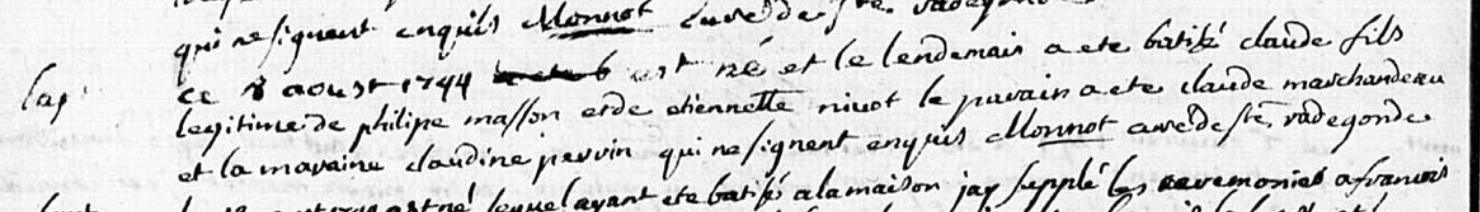 qui ne signent enquis Monnot curé de ste. radegonde
bap
ce 8 aoust 1744 est né et le lendemain a ete batisé claude fils
legitime de philipe masson et de etiennette nicot le parain a ete claude marchandeau
et la maraine claudine perrin qui ne signent enquis Monnot curé de ste radegonde
est né lequel ayant ete batisé a la maison jay supplé les ceremonies a francois